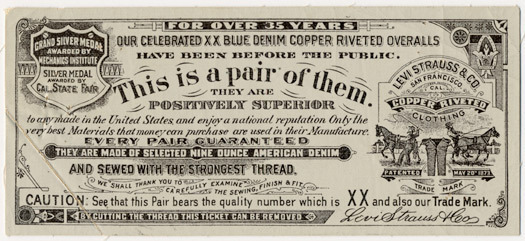 FOR OVER 35 YEARS
OUR CELEBRATED XX BLUE DENIM COPPER RIVETED OVERALLS
HAVE BEEN BEFORE THE PUBLIC.
GRAND SILVER MEDAL
AWARDED BY
MECHANICS INSTITUTE
SILVER MEDAL
AWARDED BY
CAL. STATE FAIR
This is a pair of them.
THEY ARE
POSITIVELY SUPERIOR
to any made in the United States, and enjoy a national reputation Only the
very best Materials that money can purchase are used in their Manufacture.
EVERY PAIR GUARANTEED
THEY ARE MADE OF SELECTED NINE OUNCE AMERICAN DENIM
AND SEWED WITH THE STRONGEST THREAD.
WE SHALL THANK YOU TO CAREFULLY EXAMINE THE SEWING, FINISH & FIT
LEVI STRAUSS & CO.
SAN FRANCISCO
CAL.
COPPER RIVETED
CLOTHING
PATENTED MAY 20th 1873
TRADE MARK
CAUTION: See that this Pair bears the quality number which is XX and also our Trade Mark.
BY CUTTING THE THREAD THIS TICKET CAN BE REMOVED
Levi Strauss & Co